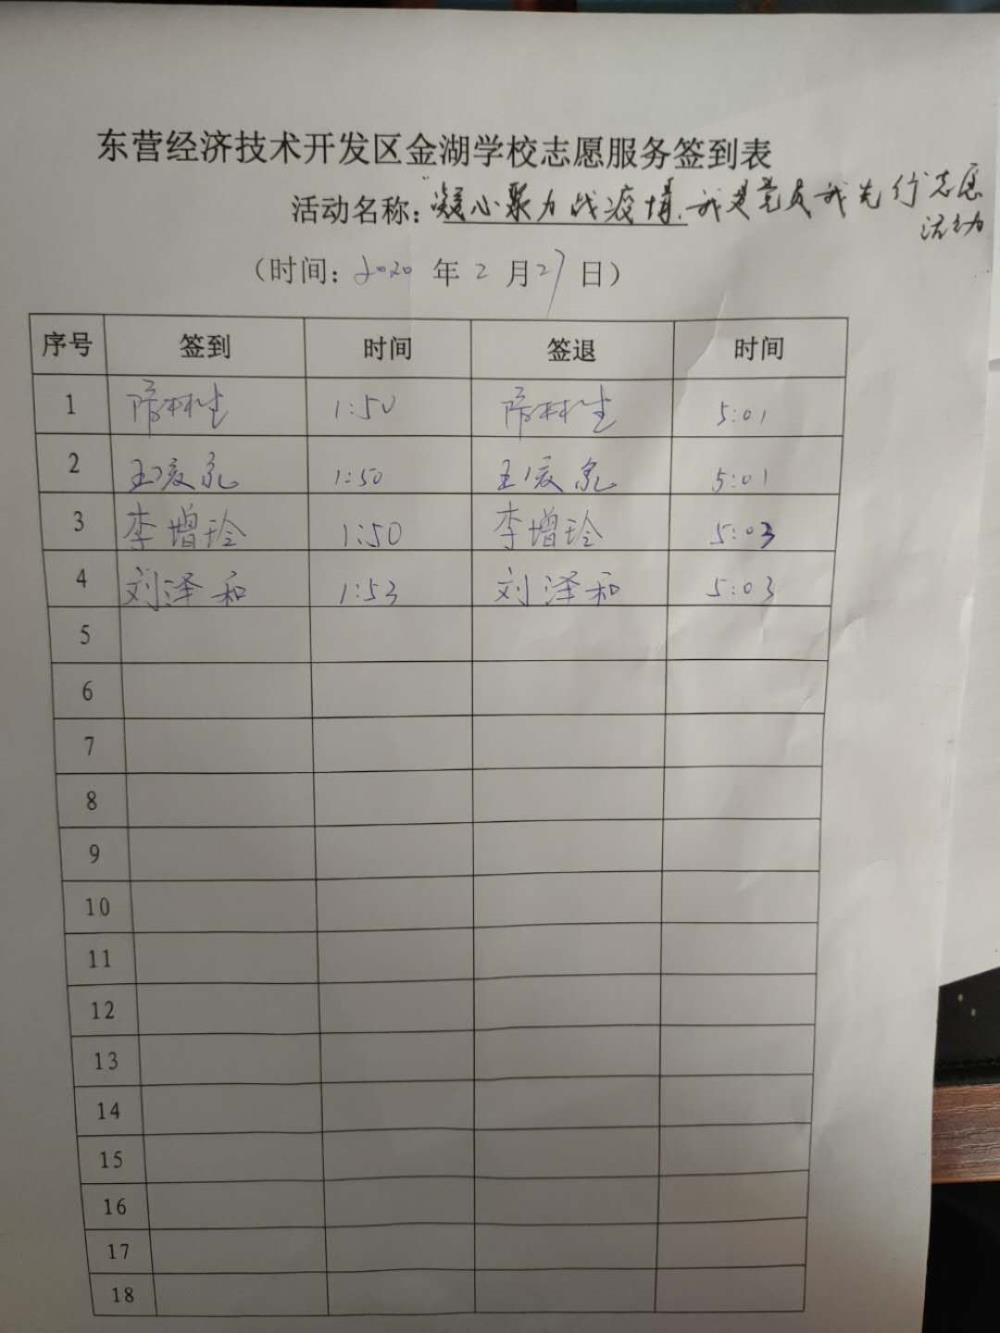 东营经济技术开发区金湖学校志愿服务签到表
活动名称：“凝心聚力战疫情，我是党员我先行”志愿
活动
（时间：2020 年 2 月 27 日）
序号 签到 时间 签退 时间
1 隋林生 1:50 隋林生 5:01
2 1:50 5:01
3 李增玲 1:50 李增玲 5:03
4 刘泽和 1:53 刘泽和 5:03
5
6
7
8
9
10
11
12
13
14
15
16
17
18